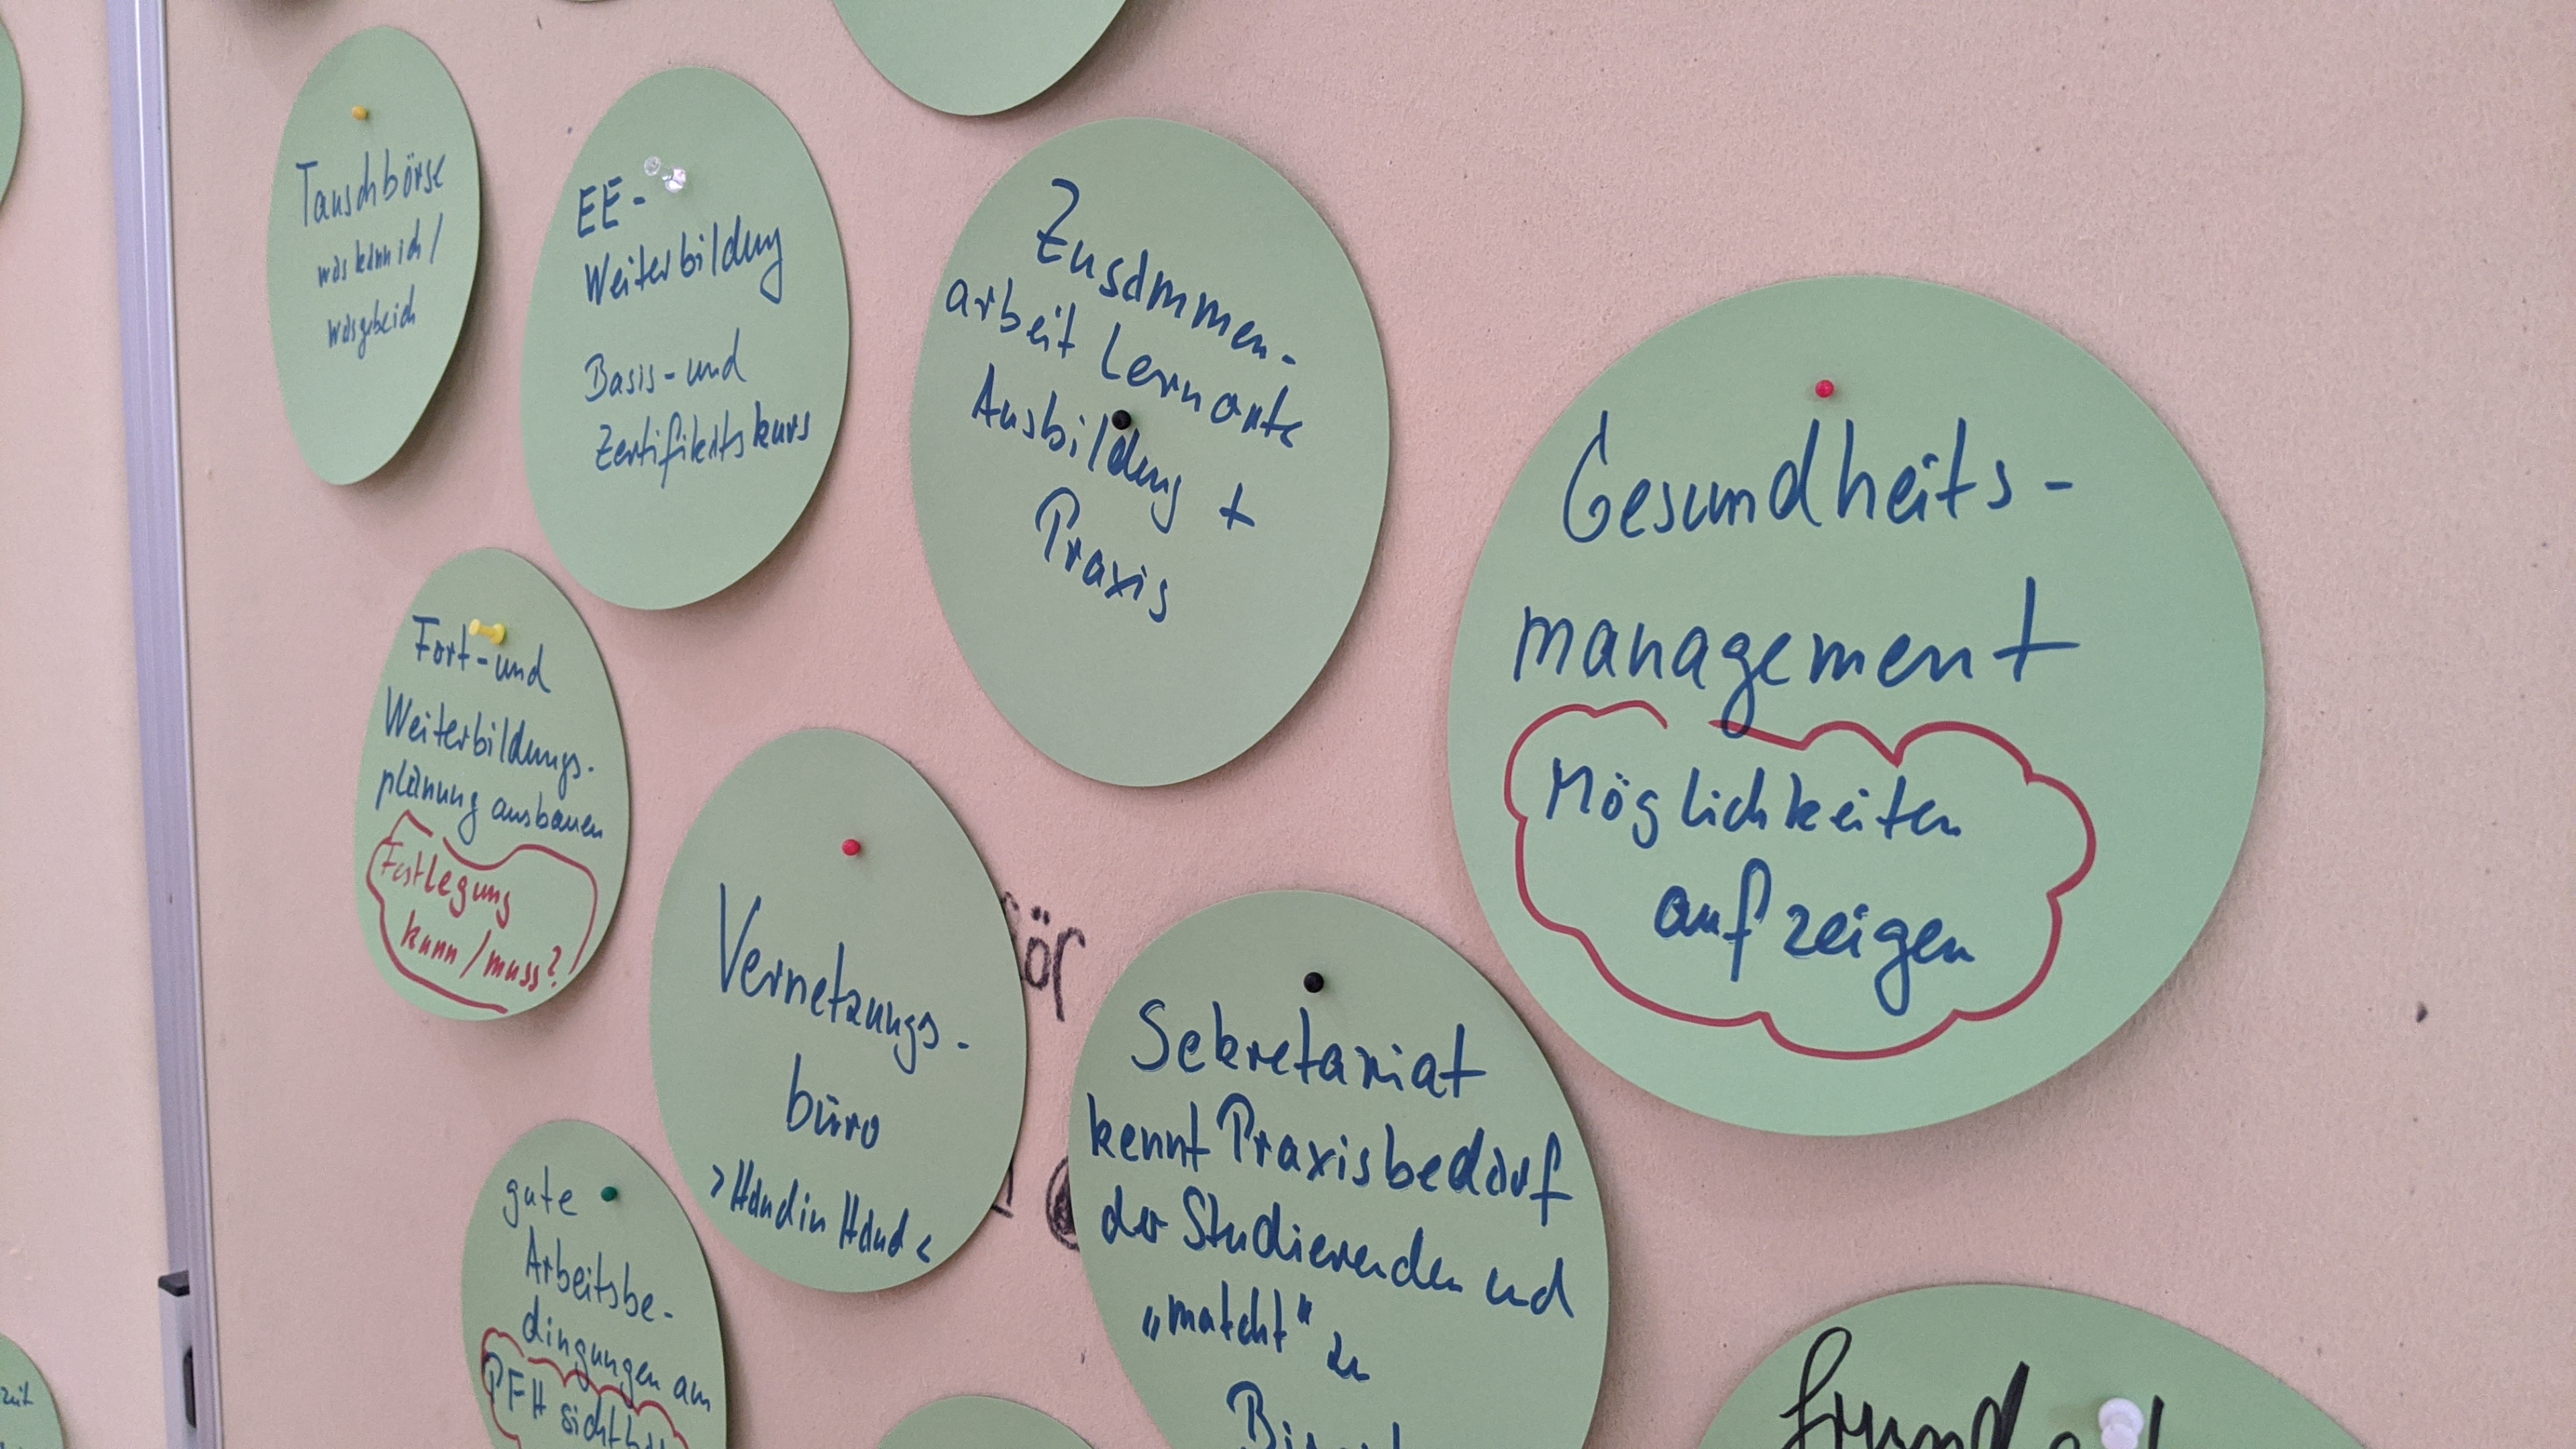 Tauschbörse
was kann ich /
was gebe ich
EE-
Weiterbildung
Basis- und
Zertifikatskurs
Zusammen-
arbeit Lernorte
Ausbildung +
Praxis
Gesundheits-
management
Möglichkeiten
aufzeigen
Fort- und
Weiterbildungs-
planung ausbauen
Festlegung
kann / muss?
Vernetzungs-
büro
> Hand in Hand <
ör
Sekretariat
kennt Praxisbedarf
der Studierenden und
„matcht" zu
gute
Arbeitsbe-
dingungen am
PFH
zeit